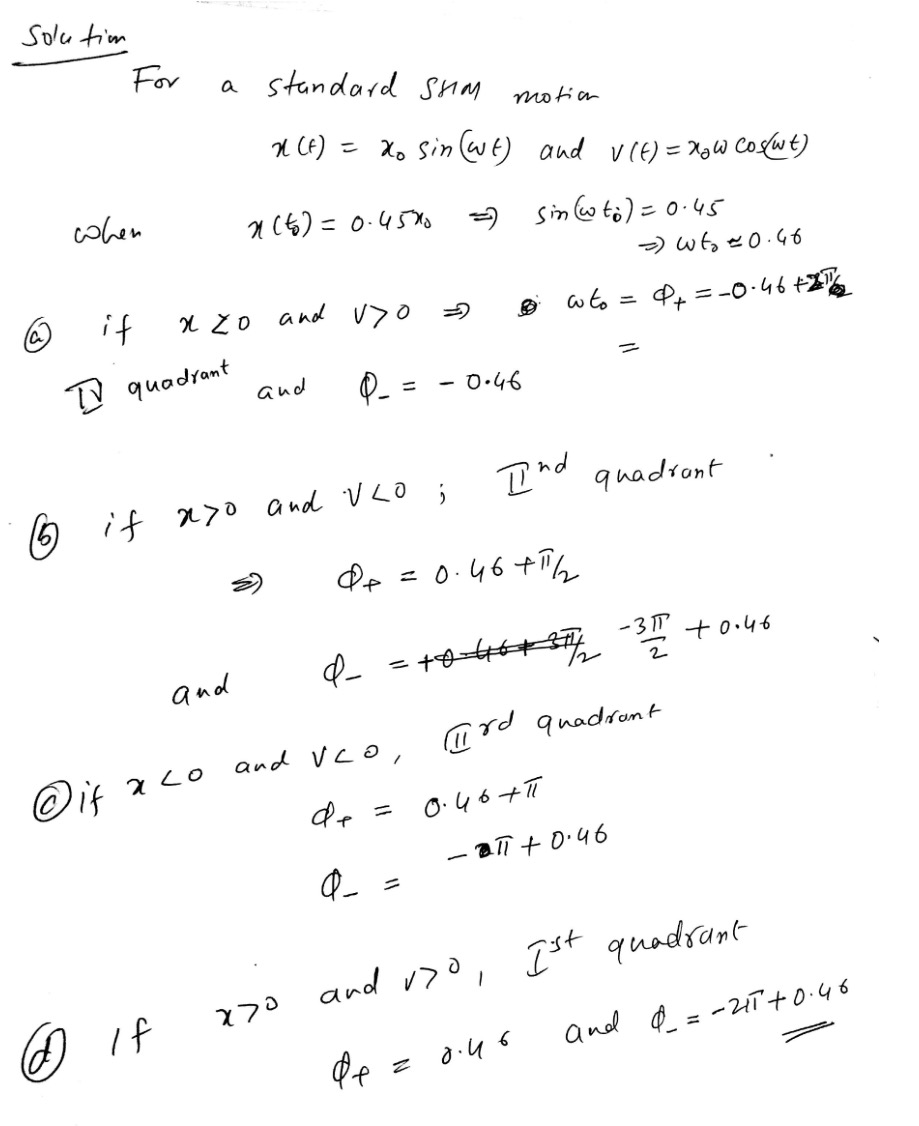 Solution
For a standard SHM motion
x(t) = x₀ sin(ωt) and v(t) = x₀ω cos(ωt)
when x(t₀) = 0.45x₀ ⇒ sin(ωt₀) = 0.45
⇒ ωt₀ ≈ 0.46
(a) if x<0 and v>0 ⇒ ωt₀ = Φ₊ = -0.46 + 2π
=
IV quadrant and Φ₋ = -0.46
(b) if x>0 and v<0 ; IInd quadrant
⇒ Φ₊ = 0.46 + π/2
and Φ₋ = -3π/2 + 0.46
(c) if x<0 and v<0, IIIrd quadrant
Φ₊ = 0.46 + π
Φ₋ = -π + 0.46
(d) If x>0 and v>0, Ist quadrant
Φ₊ = 0.46 and Φ₋ = -2π + 0.46